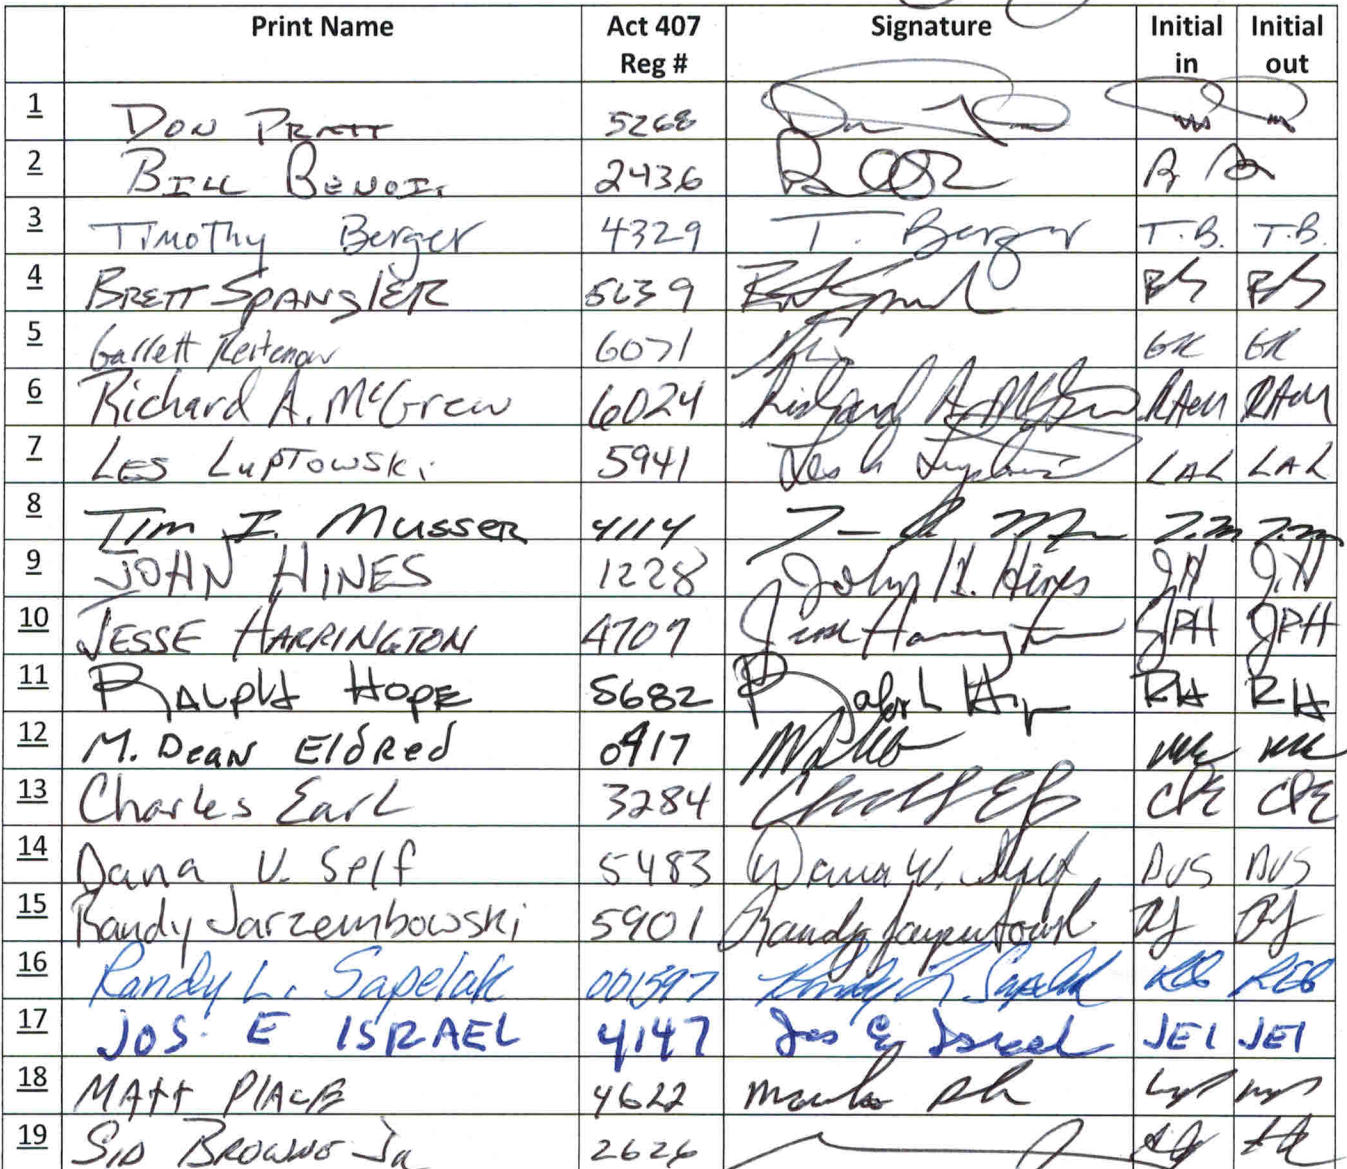 Print Name Act 407 Reg # Signature Initial in Initial out
1 DON PRATT 5268
2 BILL 2436
3 Timothy Berger 4329 T. Berger T.B. T.B.
4 BRETT SPANGLER 5639 BS BS
5 Garrett 6071 GR GR
6 Richard A. McGrew 6024 Richard A. McGrew RAM RAM
7 LES LUPTOWSKi 5941 LAL LAL
8 Tim I. Musser 4114 T.M T.M
9 JOHN HINES 1228 John H. Hines JH J.H
10 JESSE HARRINGTON 4707 JPH JPH
11 RALPH HOPE 5682 Ralph RH RH
12 M. DEAN ElDRed 0917
13 Charles Earl 3284 CPE CPE
14 Dana V. Self 5483 Dana V. Self DVS DVS
15 Randy Jarzembowski 5901 Randy RJ RJ
16 Randy L. Sapelak 001597 Randy L Sapelak
17 JOS. E ISRAEL 4147 Jos E Israel JEI JEI
18 MATT PlACE 4622
19 SID 2626